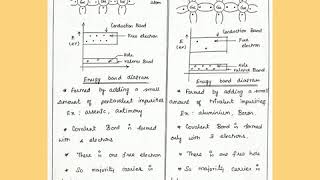 Ge Ge Ge
Conduction Band
E
(eV)
Free
electron
Hole
Valence Band
Energy band diagram
* Formed by adding a small
amount of pentavalent impurities
Ex: arsenic, antimony
* Covalent Bond is formed
with 4 electrons.
* There is one free electron
* So majority carrier is
Conduction Band
E
(eV)
Free
electron
Hole
Valence Band
Energy band diagram
* Formed by adding a small
amount of trivalent impurities
Ex: aluminium, Boron.
* Covalent Bond is formed
only with 3 electrons.
* There is one free hole
* So majority carrier is